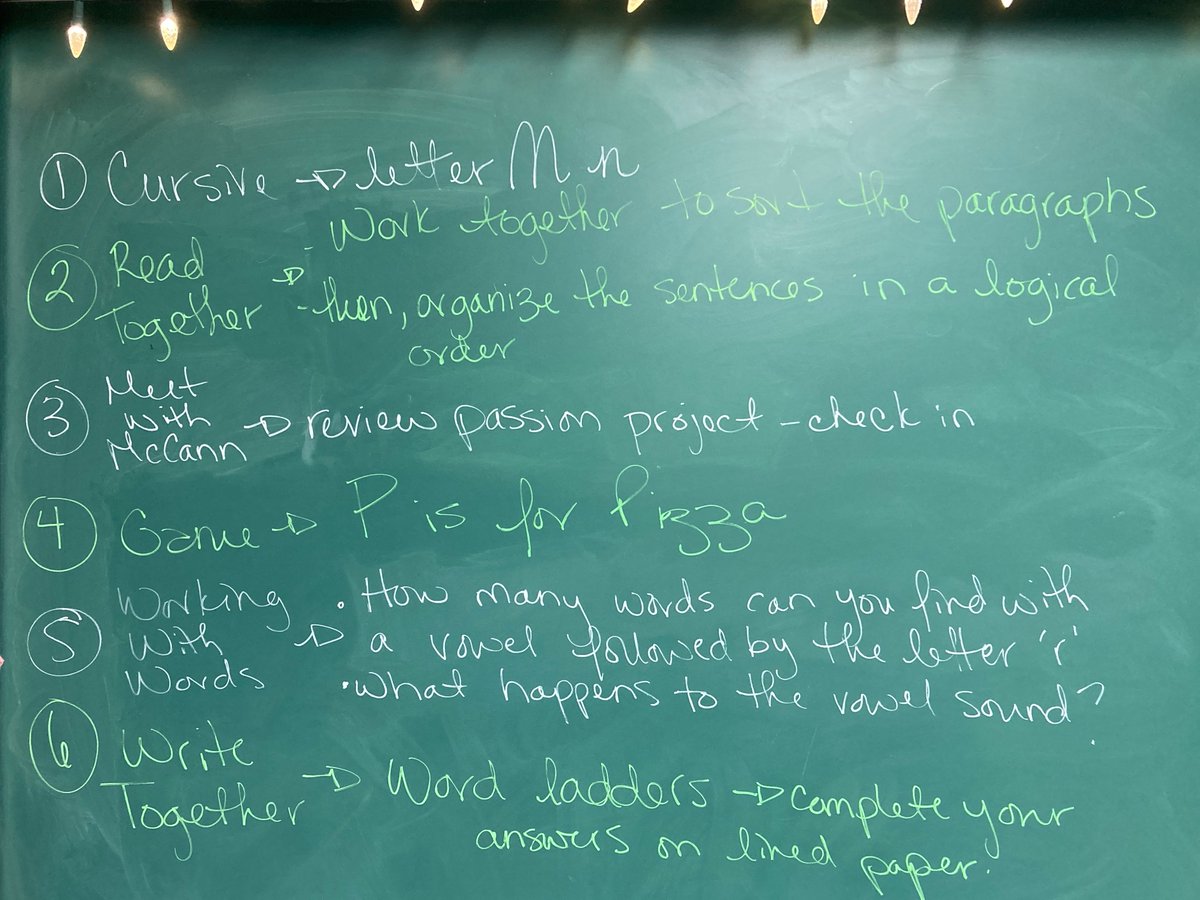 ① Cursive → letter M n
② Read Together → - Work together to sort the paragraphs
- then, organize the sentences in a logical
order
③ Meet With McCann → review passion project - check in
④ Game → P is for Pizza
⑤ Working With Words → • How many words can you find with
a vowel followed by the letter 'r'
• What happens to the vowel sound?
⑥ Write Together → Word ladders → complete your
answers on lined paper.